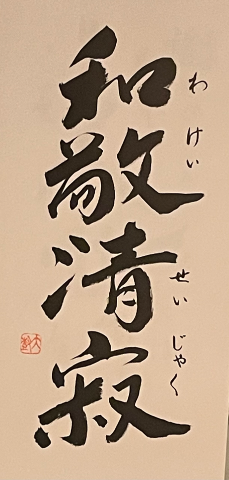 和敬清寂
わけい
せいじゃく